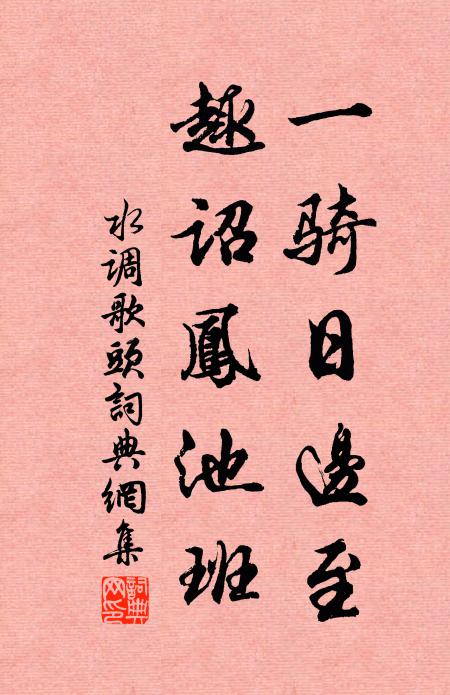 一骑日邊至
趣诏鳳池班
水调歌頭詞典網集
詞典网印